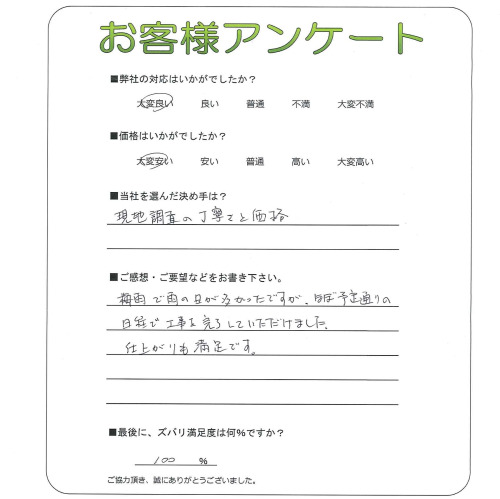 お客様アンケート
■弊社の対応はいかがでしたか？
大変良い 良い 普通 不満 大変不満
■価格はいかがでしたか？
大変安い 安い 普通 高い 大変高い
■当社を選んだ決め手は？
現地調査の丁寧さと価格
■ご感想・ご要望などをお書き下さい。
梅雨で雨の日が多かったですが、ほぼ予定通りの
日程で工事を完了していただけました。
仕上がりも満足です。
■最後に、ズバリ満足度は何％ですか？
100 ％
ご協力頂き、誠にありがとうございました。